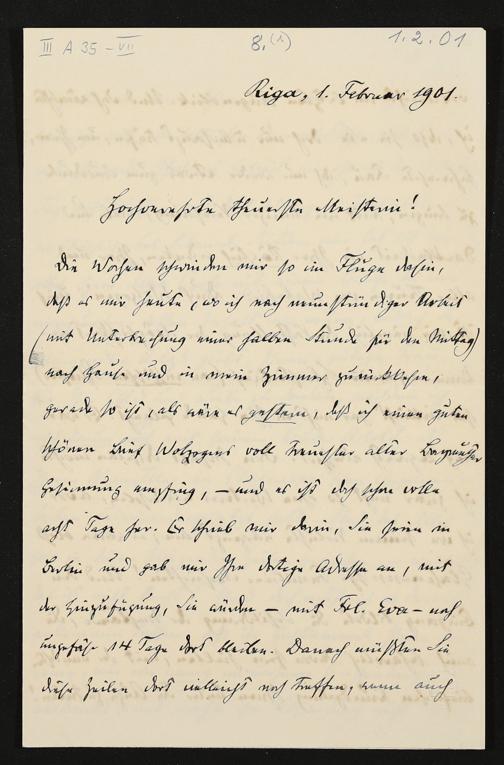 III A 35 – VII
8.
1.2.01
Riga, 1. Februar 1901.
Hochverehrte theuerste Meisterin!
Die Wochen schwinden mir so im Fluge dahin,
daß es mir heute, wo ich nach neunstündiger Arbeit
(mit Unterbrechung einer halben Stunde für den Mittag)
nach Hause und in mein Zimmer zurückkehre,
gerade so ist, als wäre es gestern, daß ich einen guten
schönen Brief Wolzogens voll treuester alter Bayreuther
Gesinnung empfing, – und es ist doch schon volle
acht Tage her. Er schrieb mir darin, Sie seien in
Berlin und gab mir Ihre dortige Adresse an, mit
der Hinzufügung, Sie würden – mit Frl. Eva – noch
ungefähr 14 Tage dort bleiben. Danach müßten Sie
diese Zeilen dort vielleicht noch treffen, wenn auch